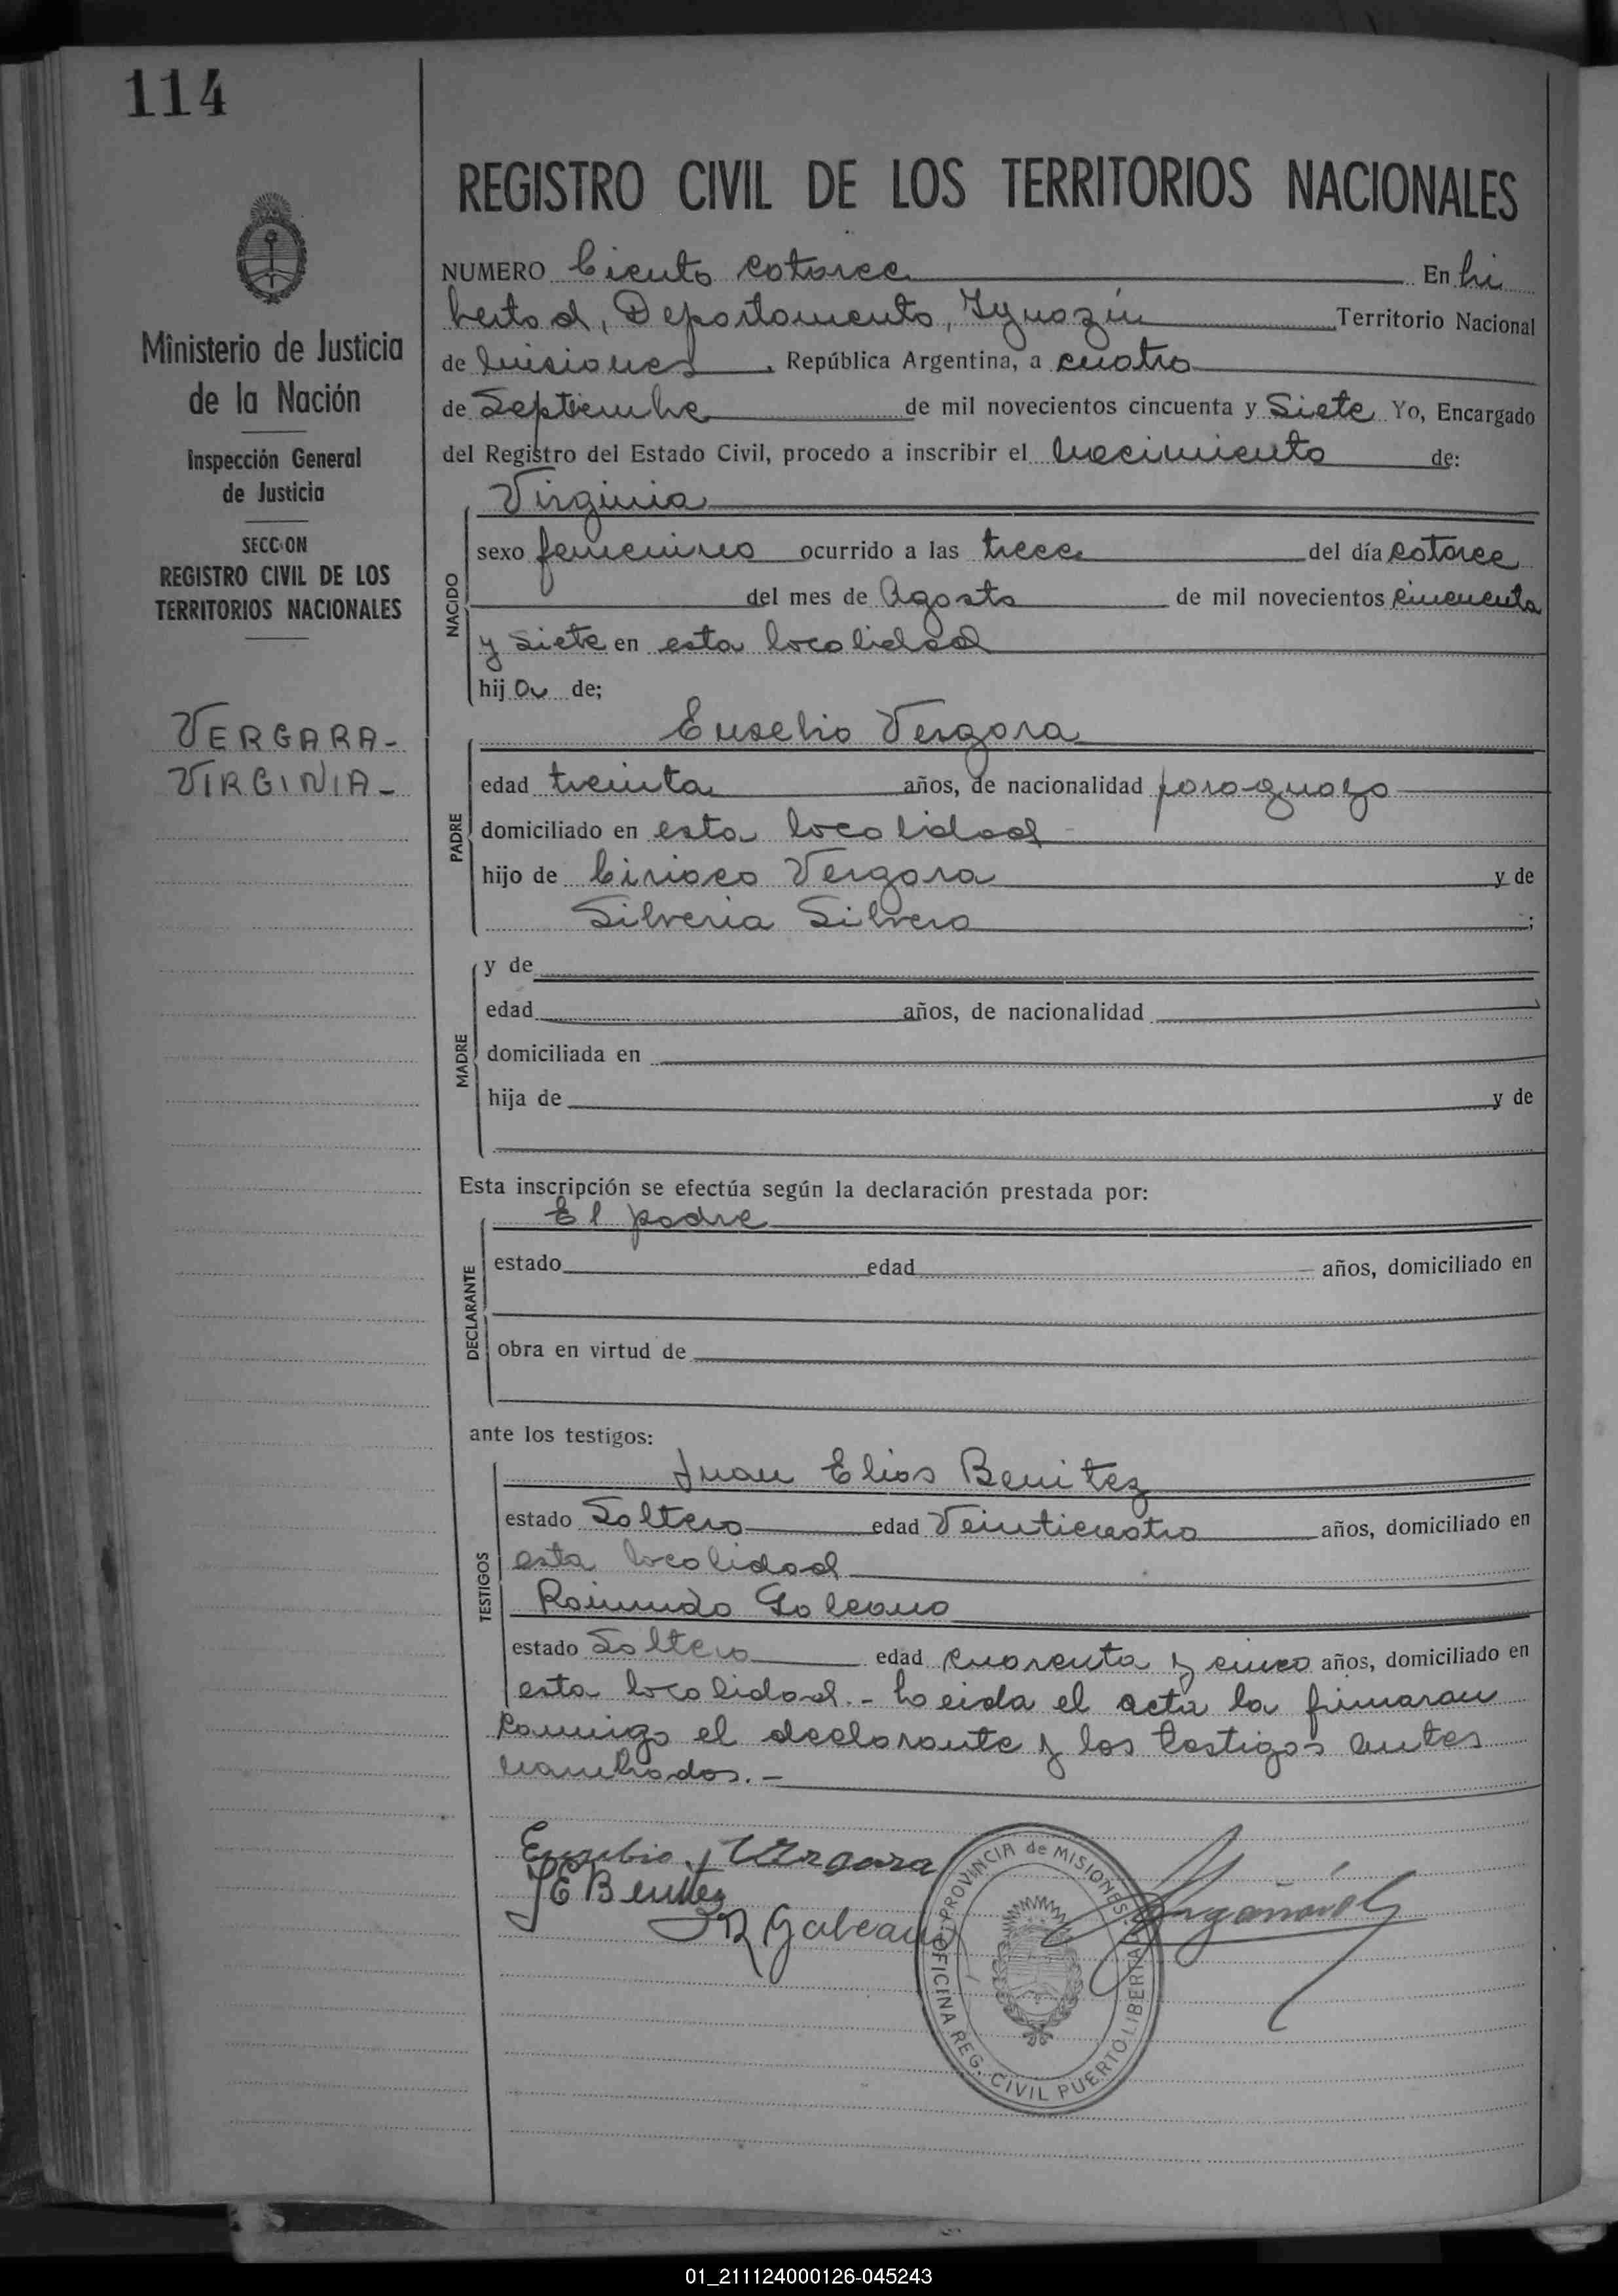 114
REGISTRO CIVIL DE LOS TERRITORIOS NACIONALES
Ministerio de Justicia
de la Nación
Inspección General
de Justicia
SECCION
REGISTRO CIVIL DE LOS
TERRITORIOS NACIONALES
VERGARA-
VIRGINIA-
NUMERO Ciento catorce En Li
bertad, Departamento, Yguazú Territorio Nacional
de Misiones, República Argentina, a cuatro
de Septiembre de mil novecientos cincuenta y Siete Yo, Encargado
del Registro del Estado Civil, procedo a inscribir el nacimiento de:
NACIDO
Virginia
sexo femenino ocurrido a las trece del día catorce
del mes de Agosto de mil novecientos cincuenta
y siete en esta localidad
hija de;
PADRE
Eusebio Vergara
edad treinta años, de nacionalidad paraguayo
domiciliado en esta localidad
hijo de Ciriaco Vergara y de
Silveria Silvero;
MADRE
y de
edad años, de nacionalidad
domiciliada en
hija de y de
Esta inscripción se efectúa según la declaración prestada por:
DECLARANTE
El padre
estado edad años, domiciliado en
obra en virtud de
ante los testigos:
TESTIGOS
Juan Elias Benitez
estado Soltero edad Veinticuatro años, domiciliado en
esta localidad
Raimundo Galeano
estado Soltero edad cuarenta y cinco años, domiciliado en
esta localidad.- Leida el acta la firmaran
conmigo el declarante y los testigos antes
nombrados.-
Eusebio Vergara
J E Benitez
R Galeano
PROVINCIA de MISIONES
OFICINA REG. CIVIL PUERTO LIBERTAD
01_211124000126-045243